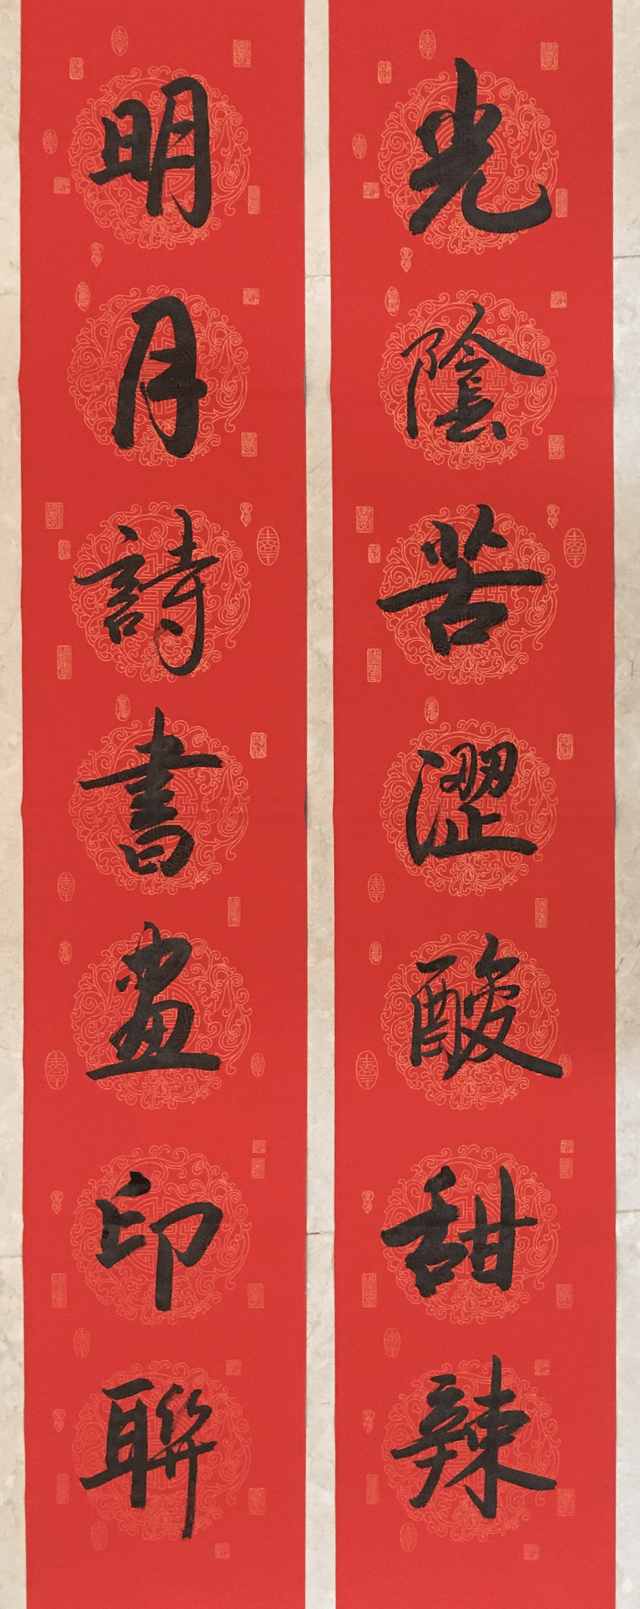 光陰苦澀酸甜辣
明月詩書畫印聯